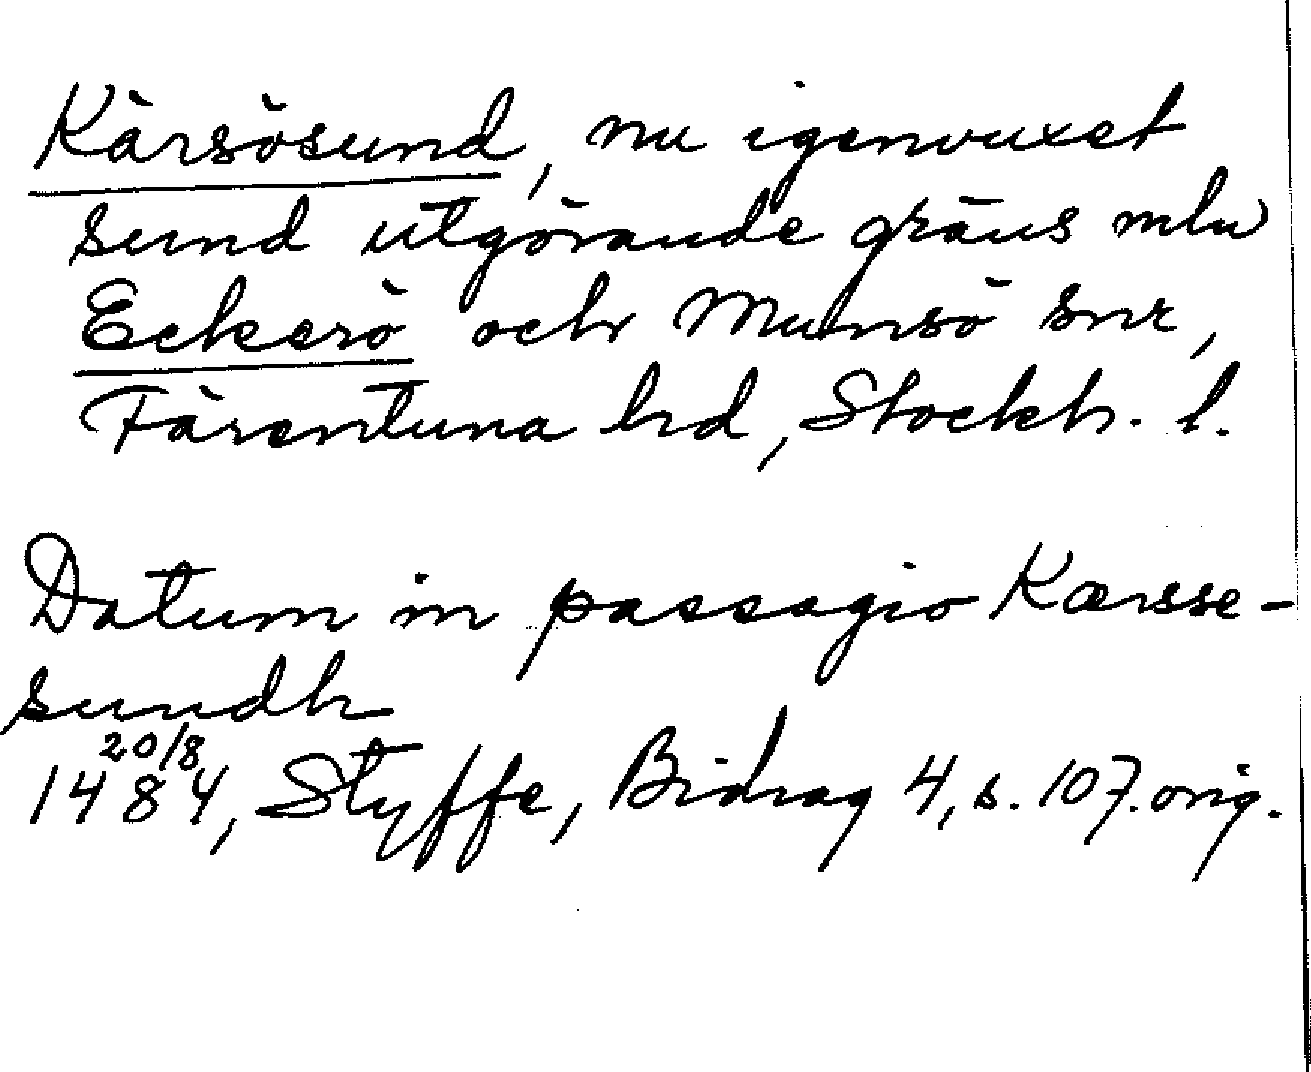 Kärsösund, nu igenvuxet
sund utgörande gräns mln
Eckerö och Munsö snr,
Färentuna hd, Stockh. l.
Datum in passagio Kærsse-
sundh
20/8
1484, Styffe, Bidrag 4, s. 107. orig.